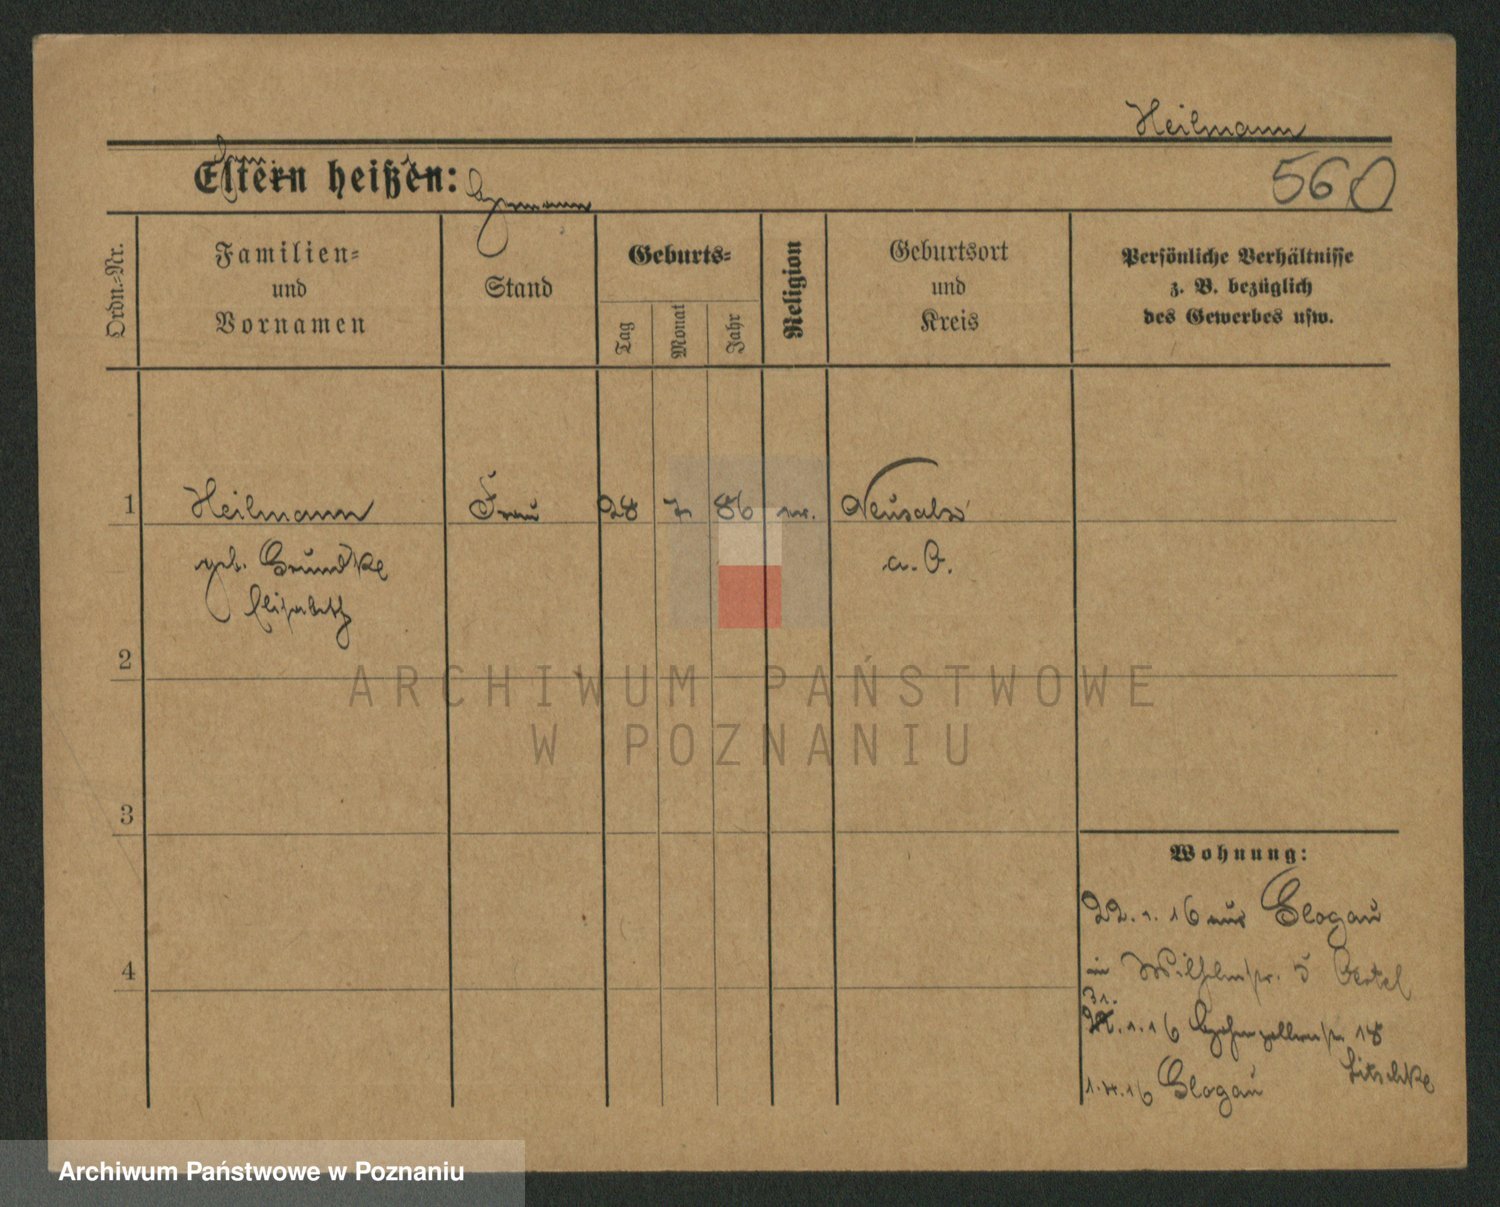 Heilmann
Eltern heißen:
560
Ordn.-Nr.
Familien-
und
Vornamen
Stand
Geburts-
Tag
Monat
Jahr
Religion
Geburtsort
und
Kreis
Persönliche Verhältnisse
z. B. bezüglich
des Gewerbes usw.
1 Heilmann Frau 28 7 86 Neusalz
geb. Grundke a. O.
Elisabeth
2
ARCHIWUM PAŃSTWOWE
W POZNANIU
3
Wohnung:
22. 1. 16 aus Glogau
4
in Wilhelmstr. 5 Oertel
31.
1. 16 Hohenzollernstr. 18
Litschke
1. 4. 16 Glogau
Archiwum Państwowe w Poznaniu